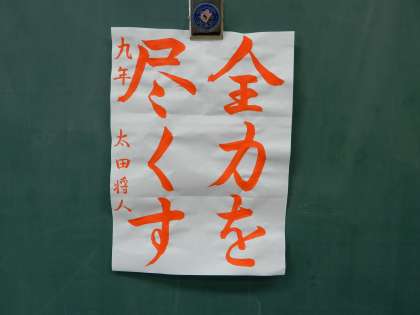 全力を
尽くす
九年 太田将人